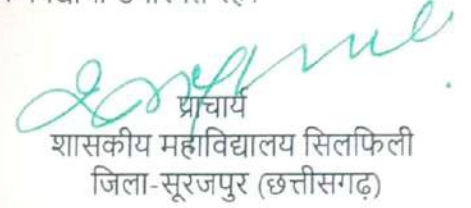 प्राचार्य
शासकीय महाविद्यालय सिलफिली
जिला-सूरजपुर (छत्तीसगढ़)